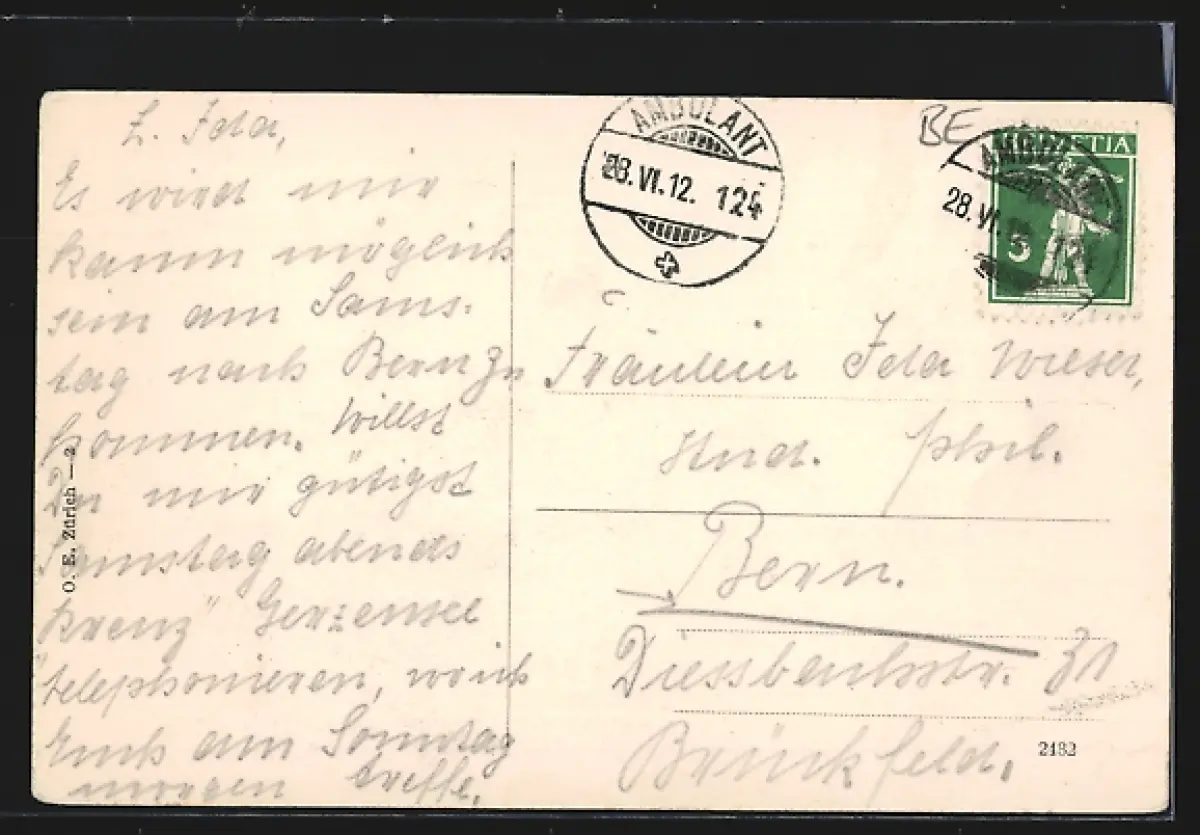 L. Ida,
Es wird mir
kaum möglich
sein am Sams-
tag nach Bern zu
kommen. Willst
Du mir gütigst
Samstag abends
Kreuz" Gerzensee
telephonieren, wo ich
Euch am Sonntag
morgen treffe.
O. E. Zürich — 2
AMBULANT
28.VI.12. 124
BE
HELVETIA
5
AMBULANT
28.VI.12. 12
Fräulein Ida Wieser,
stud. phil.
Bern.
Diessbachstr. 31
Brückfeld.
2182